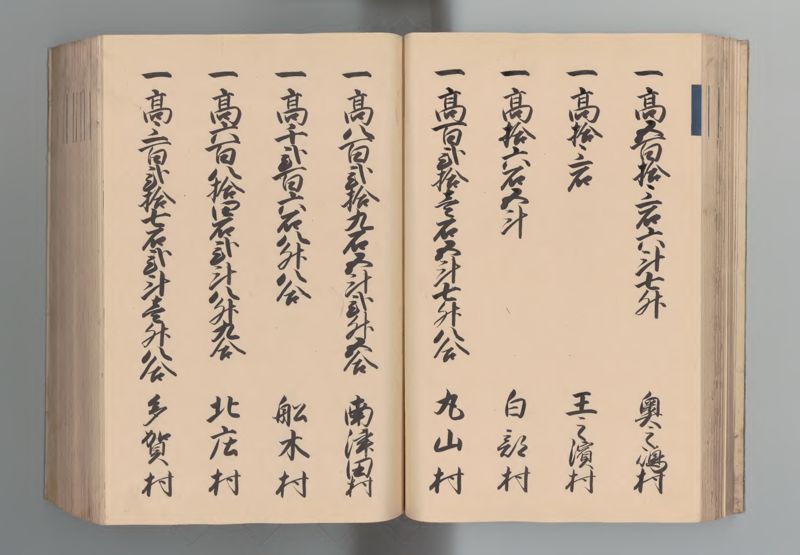 一 高五百拾三石六斗七升 奥之嶋村
一 高拾三石 王之濱村
一 高拾六石五斗 白部村
一 高百弐拾壱石五斗七升八合 丸山村
一 高八百弐拾九石五斗弐升五合 南津田村
一 高千弐百六石八升八合 船木村
一 高六百八拾四石弐斗八升九合 北庄村
一 高三百弐拾七石弐斗壱升八合 多賀村